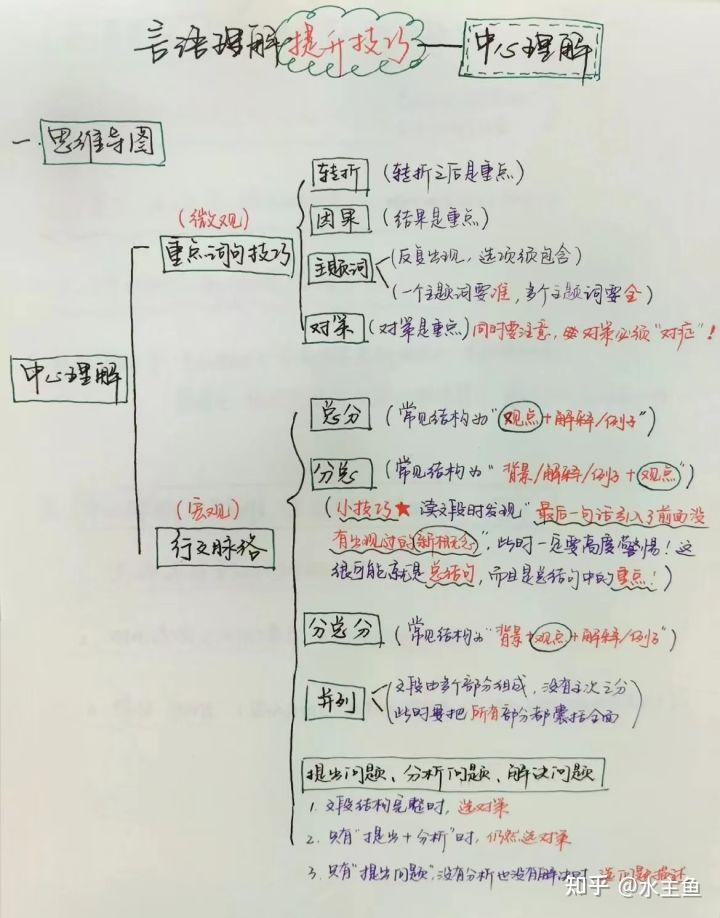 言语理解提升技巧——中心理解
一.思维导图
中心理解
(微观)
重点词句技巧
转折 (转折之后是重点)
因果 (结果是重点)
主题词 (反复出现，选项须包含)
(一个主题词要准，多个主题词要全)
对策 (对策是重点) 同时要注意，对策必须"对症"！
(宏观)
行文脉络
总分 (常见结构为"观点+解释/例子")
分总 (常见结构为"背景/解释/例子+观点")
(小技巧★ 读文段时发现"最后一句话引入了前面没
有出现过的新概念"，此时一定要高度警惕！这
很可能就是总结句，而且是总结句中的重点！)
分总分 (常见结构为"背景+观点+解释/例子")
并列 (文段由多个部分组成，没有主次之分
此时要把所有部分都囊括全面)
提出问题、分析问题、解决问题
1. 文段结构完整时，选对策
2. 只有"提出+分析"时，仍然选对策
3. 只有"提出问题"，没有分析也没有解决时，选问题描述
知乎 @水王鱼